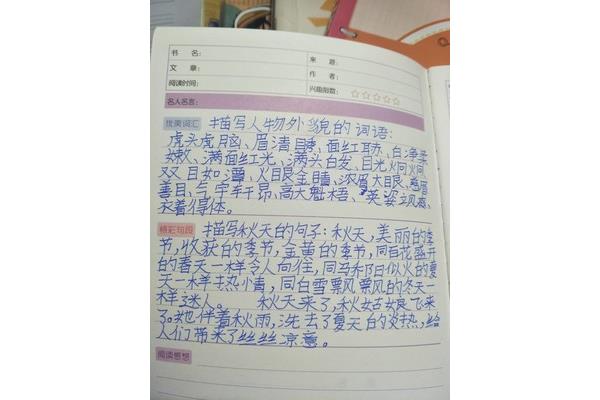 书 名: 来 源:
文 章: 作 者:
阅读时间: 兴趣指数: ☆☆☆☆☆
名人名言:
优美词汇 描写人物外貌的词语:
虎头虎脑、眉清目睡、面红耳赤、白净柔
嫩、满面红光、满头白发、目光炯炯、
双目如潭、火眼金睛、浓眉大眼、慈眉
善目、气宇轩昂、高大魁梧、英姿飒爽、
衣着得体。
精彩句段 描写秋天的句子:秋天,美丽的季
节,收获的季节,金黄的季节,同百花盛开
的春天一样令人向往,同骄阳似火的夏
天一样热情,同白雪飘飘的冬天一
样迷人。 秋天来了,秋姑娘飞来
了。她伴着秋雨,洗去了夏天的炎热,给
人们带来了丝丝凉意。
阅读感想